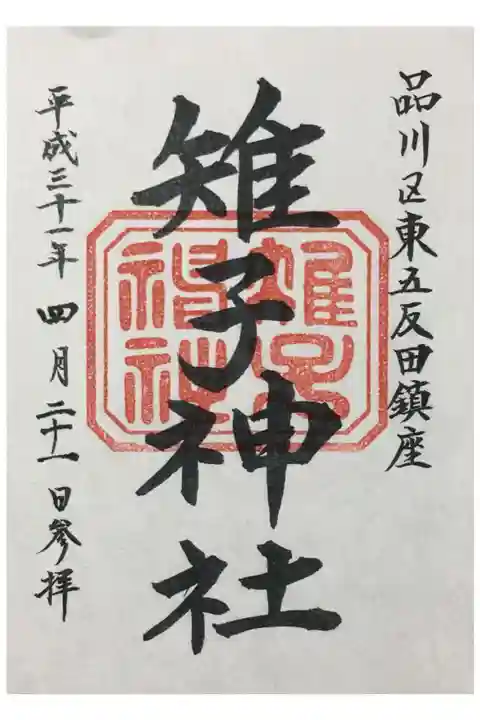 品川区東五反田鎮座
雉子神社
雉子神社
平成三十一年四月二十一日参拝